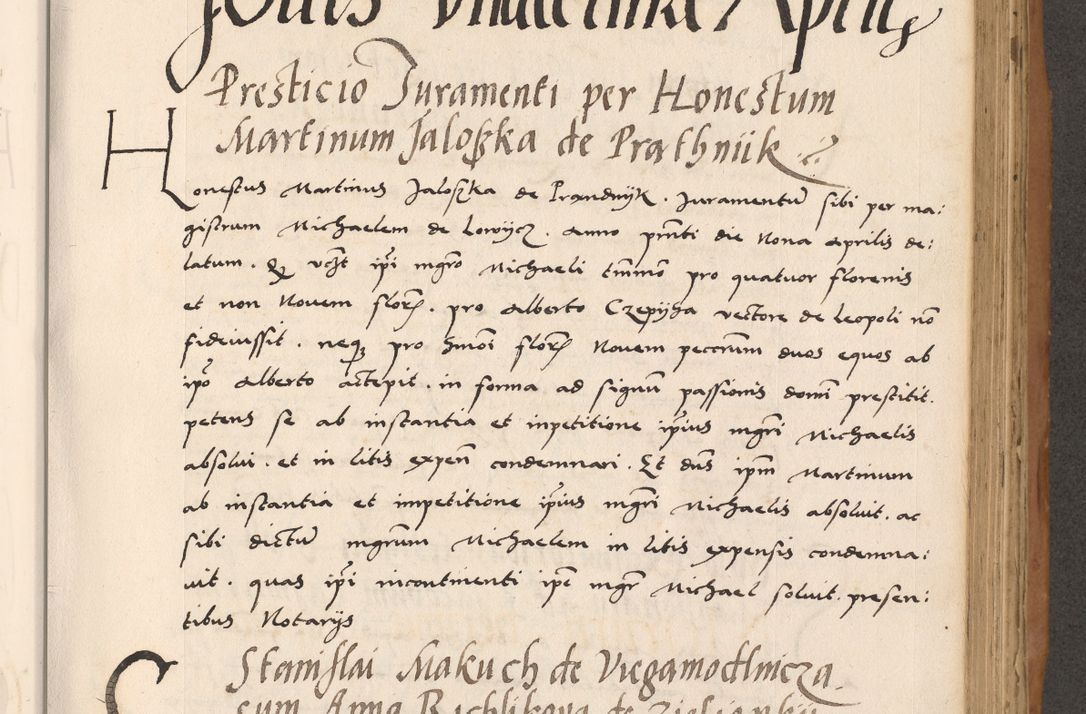 Jovis Undecima Aprilis
Presticio Juramenti per Honestum
Martinum Jaloszka de Prathniik
Honestus Martinus Jaloszka de Prandnyk. Juramentũ sibi per ma:
gistrum Michaelem de Lowycz. Anno pñti die Nona Aprilis de:
latum. Q vz̃ ip̃i mgr̃o Michaeli tm̃mo pro quatuor florenis
et non Novem flor̃. pro Alberto Czepyga vectore de Leopoli nõ
fideiussit. neq3 pro hm̃oi flor̃ Novem peccrum duos equos ab
ip̃o Alberto accepit. in forma ad signũ passionis domĩ prestitit.
petens se ab instantia et inpetitione ip̃ius mgr̃i Michaelis
absolvi. et in litis expeñ condemnari. Et dñs ipm̃ Martinum
ab instantia et impetitione ip̃ius mgr̃i Michaelis absolvit. ac
sibi dictũ mgrum Michaelem in litis expensis condemna:
vit. quas ip̃i incontinenti ipẽ mgr̃ Michael solvit. presen:
tibus Notarijs
Stanislai Makuch de Viegamodlnicza
cum Anna Rychlikowa de